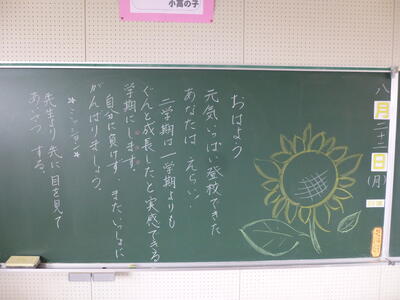 小高の子
八月二十二日(月)
おはよう
元気いっぱい登校できた
あなたは えらい!
二学期は一学期よりも
ぐんと成長したと実感できる
学期にします。
自分に負けず またいっしょに
がんばりましょう。
*ミッション*
先生より先に目を見て
あいさつ する。